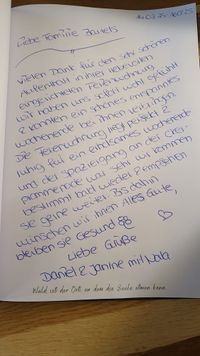 14.02.25-16.02.25
Liebe Familie
Vielen Dank für den sehr schönen
Aufenthalt in ihrer liebevollen
eingerichteten Ferienwohnung.
Wir haben uns sehr wohl gefühlt
& konnten ein schönes entspanntes
Wochenende bei Ihnen verbringen.
Die Ferienwohnung liegt perfekt &
ruhig für ein einsames Wochenende
und der Spaziergang an der
promenade war sehr
bestimmt bald wieder & empfehlen
sie gerne weiter. Bis dahin
wünschen wir ihnen alles Gute,
bleiben sie gesund
Liebe Grüße
Daniel & Janine mit Nala
Wald ist der Ort, an dem die Seele atmen kann.